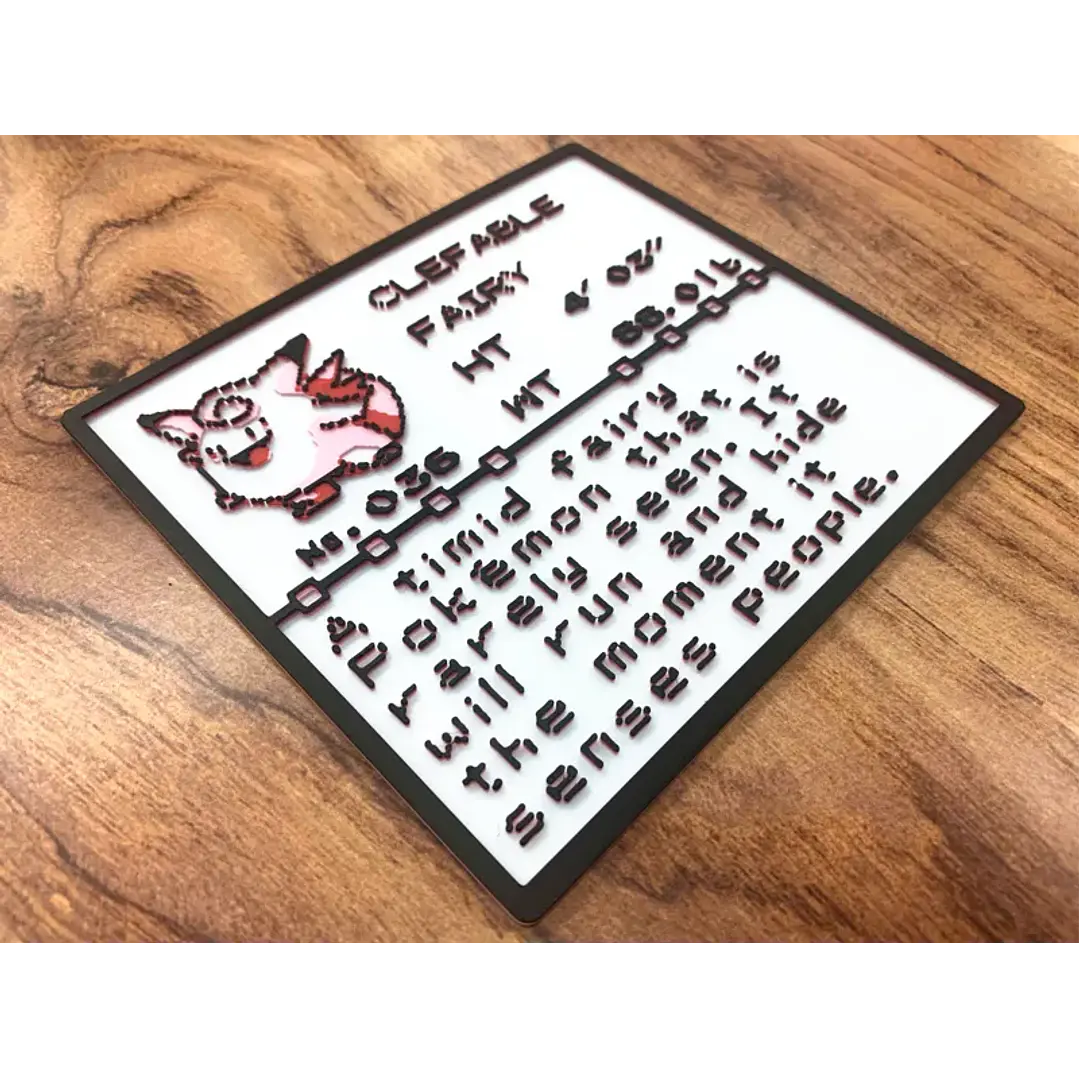 CLEFABLE
FAIRY
HT 4' 03"
WT 88.0lb
No. 036
A timid fairy
Pokémon that is
rarely seen. It
will run and hide
the moment it
senses people.